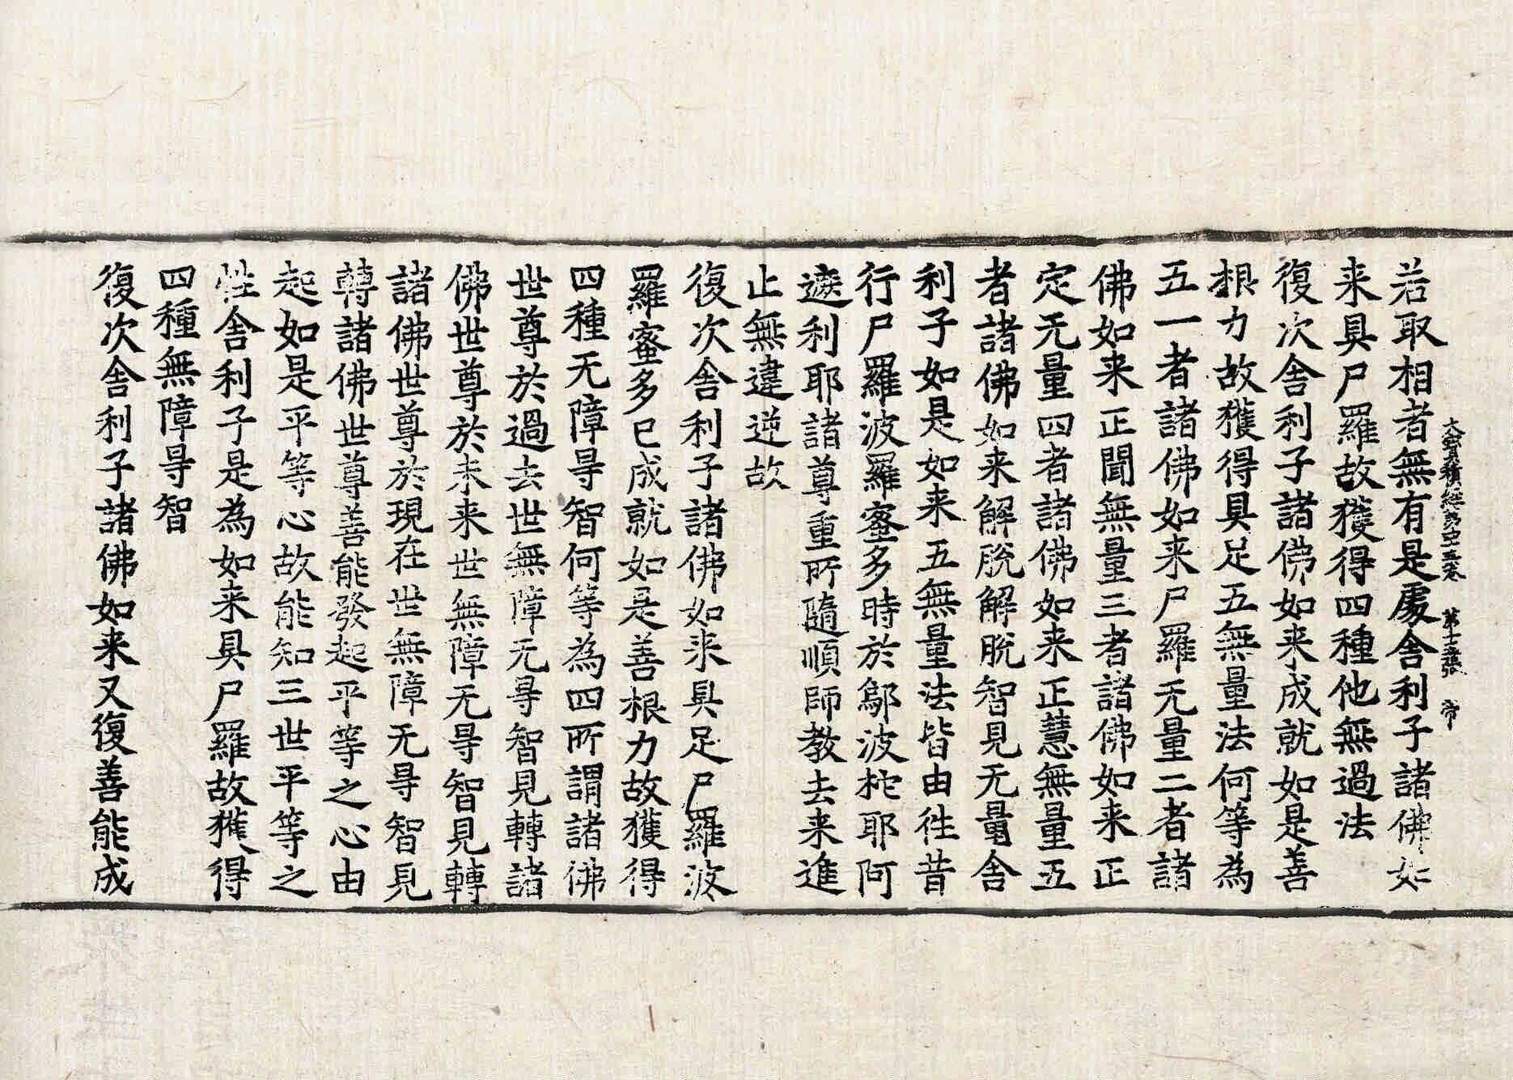 大寶積經第四十三卷 第十五張 帝
若取相者無有是處舍利子諸佛如
来具尸羅故獲得四種他無過法
復次舍利子諸佛如来成就如是善
根力故獲得具足五無量法何等為
五一者諸佛如来尸羅无量二者諸
佛如来正聞無量三者諸佛如来正
定无量四者諸佛如来正慧無量五
者諸佛如来解脫解脫智見无量舍
利子如是如来五無量法皆由徃昔
行尸羅波羅蜜多時於鄔波柁耶阿
遮利耶諸尊重所隨順師教去来進
止無違逆故
復次舍利子諸佛如来具足尸羅波
羅蜜多已成就如是善根力故獲得
四種无障㝵智何等為四所謂諸佛
世尊於過去世無障无㝵智見轉諸
佛世尊於未来世無障无㝵智見轉
諸佛世尊於現在世無障无㝵智見
轉諸佛世尊善能發起平等之心由
起如是平等心故能知三世平等之
性舍利子是為如来具尸羅故獲得
四種無障㝵智
復次舍利子諸佛如来又復善能成